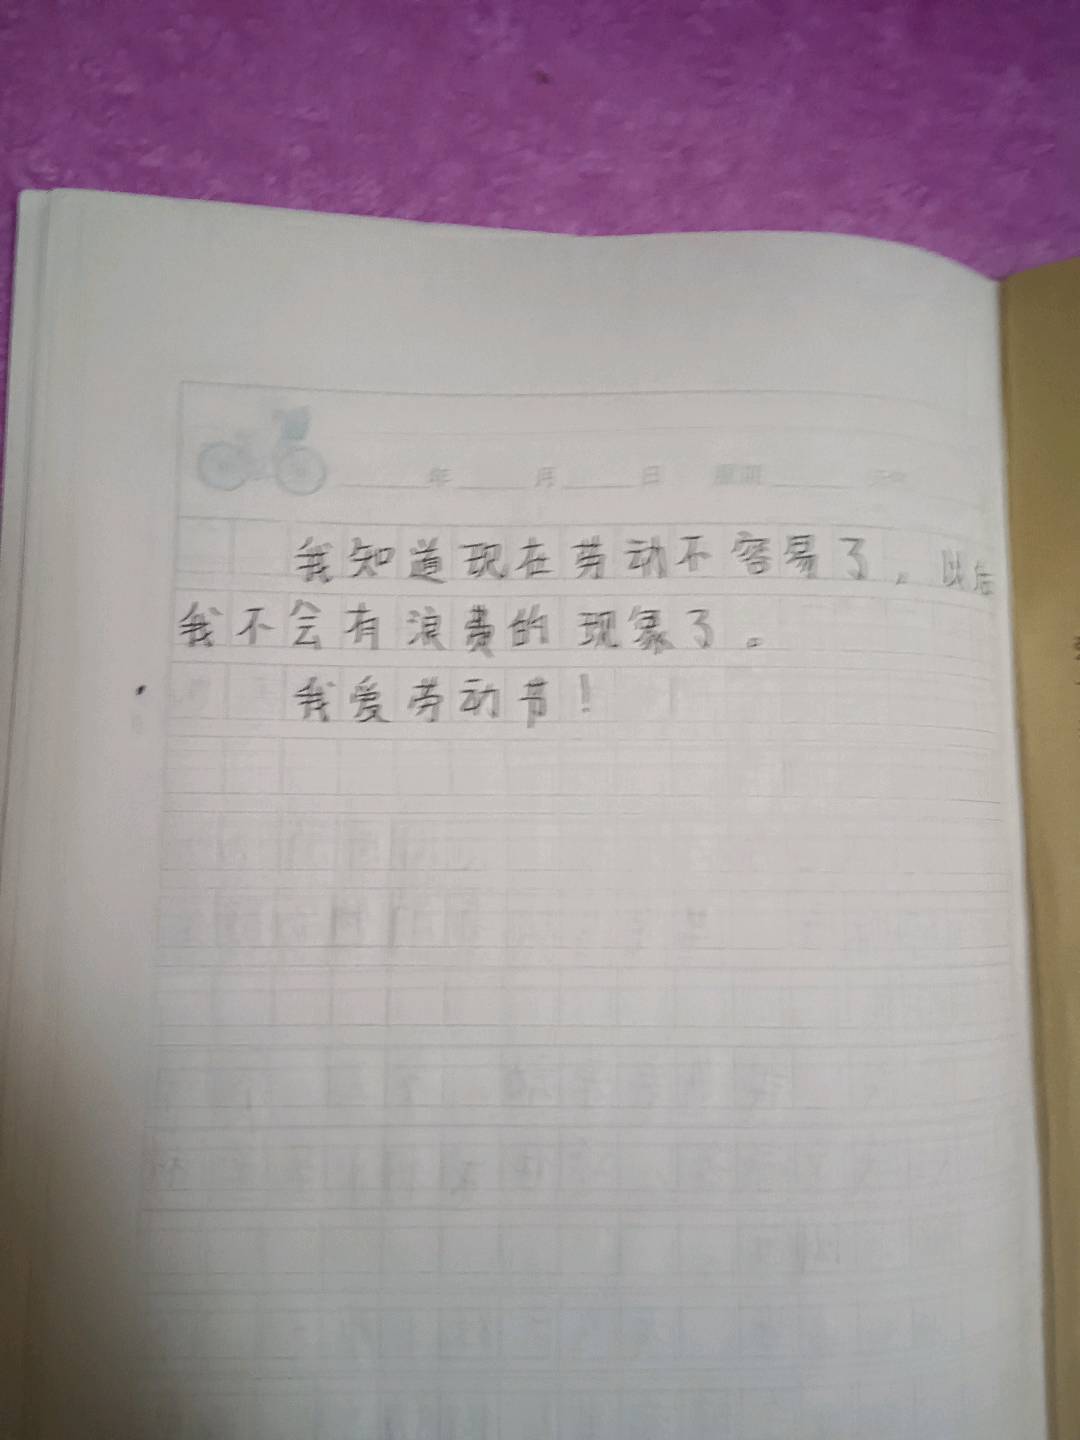 年 月 日 星期 天气
我知道现在劳动不容易了。以后
我不会有浪费的现象了。
我爱劳动节！